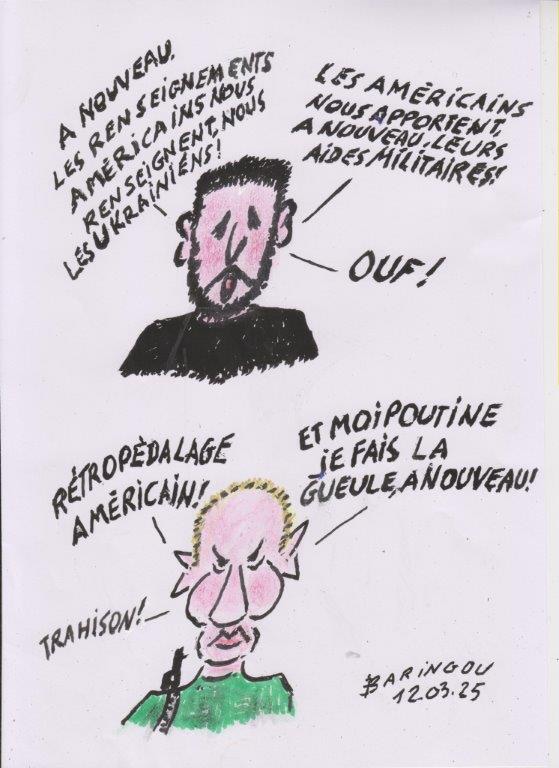 A NOUVEAU.
LES RENSEIGNEMENTS
AMÉRICAINS NOUS
RENSEIGNENT, NOUS
LES UKRAINIÉNS!
LES AMÉRICAINS
NOUS APPORTENT,
A NOUVEAU, LEURS
AIDES MILITAIRES!
OUF!
RÉTROPÉDALAGE
AMÉRICAIN!
ET MOI POUTINE
JE FAIS LA
GUEULE, A NOUVEAU!
TRAHISON!
BARINGOU
12.03.25